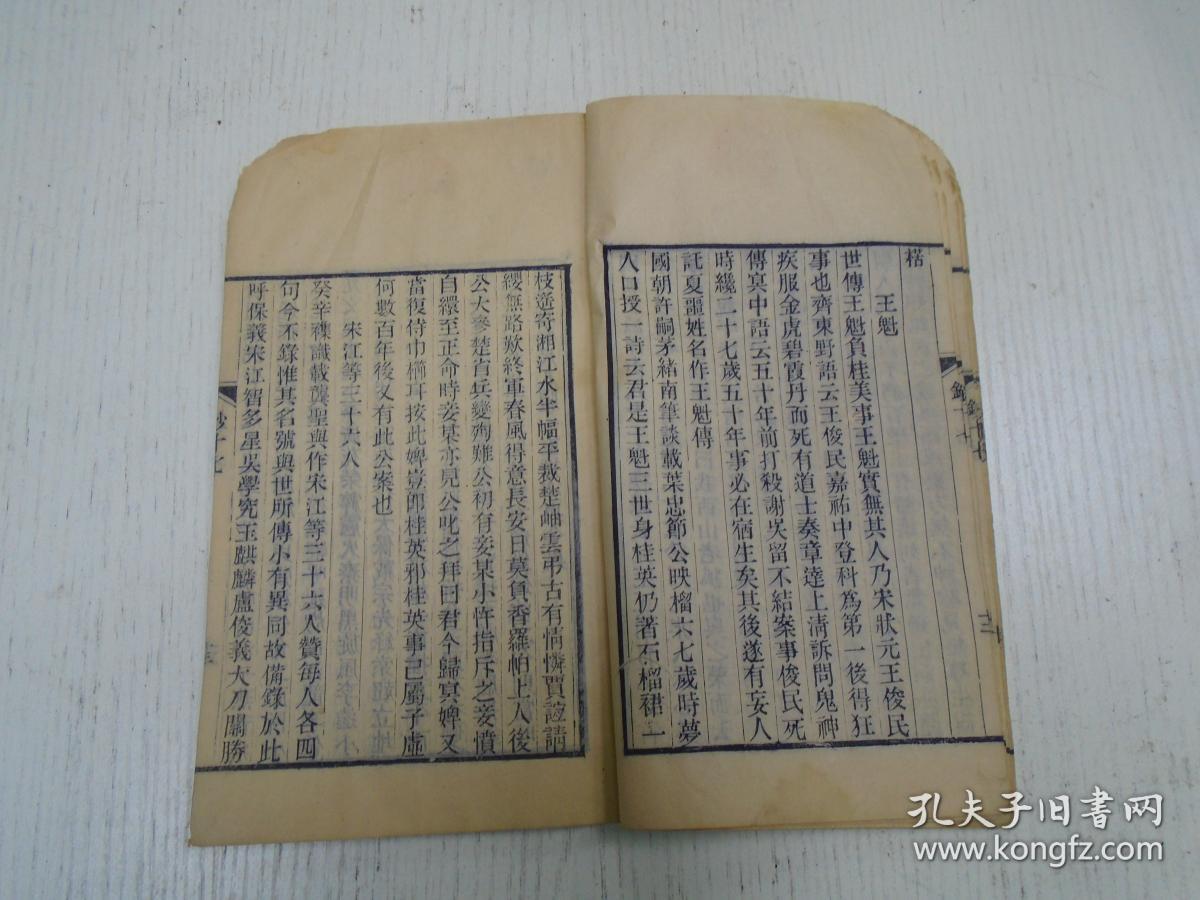 楛
王魁
世傳王魁負桂英事王魁實無其人乃宋狀元王俊民
事也齊東野語云王俊民嘉祐中登科為第一後得狂
疾服金虎碧霞丹而死有道士奏章達上淸訴問鬼神
傳冥中語云五十年前打殺謝吳留不結案事俊民死
時纔二十七歲五十年事必在宿生矣其後遂有妄人
託夏噩姓名作王魁傳
國朝許嗣茅緒南筆談載葉忠節公映榴六七歲時夢
人口授一詩云君是王魁三世身桂英仍著石榴裙一
枝遥寄湘江水半幅平裁楚岫雲弔古有情憐賈誼請
纓無路歎終軍春風得意長安日莫負香羅帕上人後
公大參楚省兵變殉難公初有妾某小忤指斥之妾憤
自縊至正命時妾某亦見公叱之拜曰君今歸冥婢又
當復侍巾櫛耳按此婢豈卽桂英邪桂英事已屬子虛
何數百年後又有此公案也
宋江等三十六人
癸辛雜識載龔聖與作宋江等三十六人贊每人各四
句今不錄惟其名號與世所傳小有異同故備錄於此
呼保義宋江智多星吳學究玉麒麟盧俊義大刀關勝
鈔十七
孔夫子旧书网
www.kongfz.com